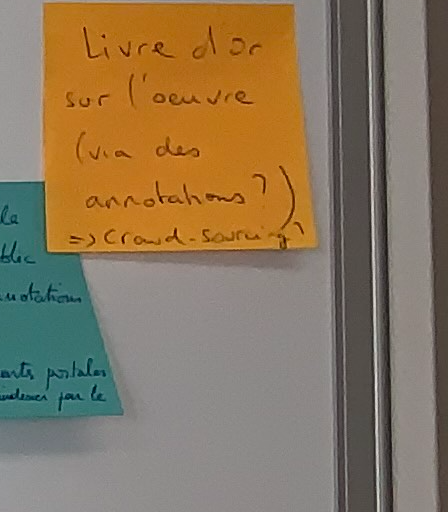 Livre d'or
sur l'oeuvre
(via des
annotations?)
=> Crowd-sourcing?
le
blic
notations
arts postales
par le